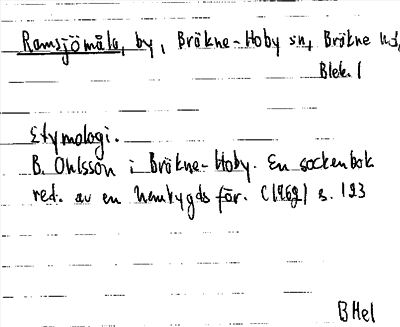 Ramsjömåla, by, Bräkne-Hoby sn, Bräkne hd,
Blek. l
Etymologi.
B. Ohlsson i Bräkne-Hoby. En sockenbok
red. av en hembygdsför. (1962) s. 123
BHel